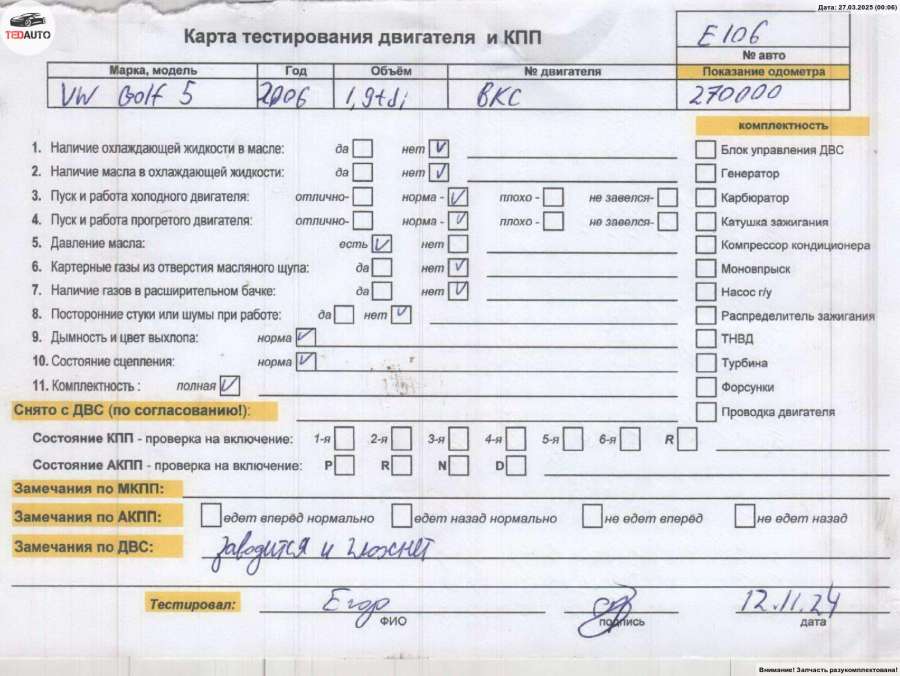 Дата: 27.03.2025 (00:06)
TEDAUTO
Карта тестирования двигателя и КПП
E106
№ авто
Марка, модель Год Объём № двигателя Показание одометра
VW Golf 5 2006 1,9tdi BKC 270000
комплектность
1. Наличие охлаждающей жидкости в масле: да нет
Блок управления ДВС
2. Наличие масла в охлаждающей жидкости: да нет
Генератор
3. Пуск и работа холодного двигателя: отлично- норма - плохо - не завелся-
Карбюратор
4. Пуск и работа прогретого двигателя: отлично- норма - плохо - не завелся-
Катушка зажигания
5. Давление масла: есть нет
Компрессор кондиционера
6. Картерные газы из отверстия масляного щупа: да нет
Моновпрыск
7. Наличие газов в расширительном бачке: да нет
Насос г/у
8. Посторонние стуки или шумы при работе: да нет
Распределитель зажигания
9. Дымность и цвет выхлопа: норма
ТНВД
10. Состояние сцепления: норма
Турбина
11. Комплектность : полная
Форсунки
Снято с ДВС (по согласованию!):
Проводка двигателя
Состояние КПП - проверка на включение: 1-я 2-я 3-я 4-я 5-я 6-я R
Состояние АКПП - проверка на включение: P R N D
Замечания по МКПП:
Замечания по АКПП: едет вперёд нормально едет назад нормально не едет вперёд не едет назад
Замечания по ДВС: заводится и глохнет
Тестировал: Егор 12.11.24
ФИО подпись дата
Внимание! Запчасть разукомплектована!